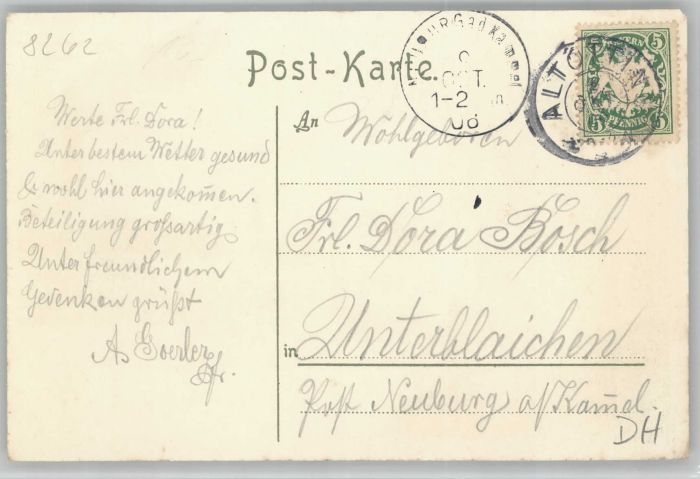 8262
Post-Karte.
OCT.
1-2 N
06
BAYERN
5
5
PFENNIG
ALTÖTTING
Werte Frl. Dora!
Unter bestem Wetter gesund
& wohl hier angekom̅en.
Beteiligung großartig.
Unter freundlichem
Gedenken grüßt
A. Goerler
An Wohlgeboren
Frl. Dora Bosch
in Unterblaichen
Post Neuburg a/Kam̅el.
DH